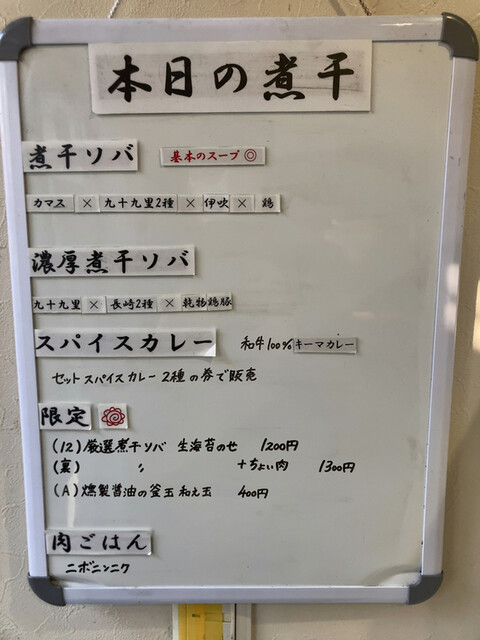 本日の煮干
煮干ソバ 基本のスープ◎
カマス × 九十九里2種 × 伊吹 × 鶏
濃厚煮干ソバ
九十九里 × 長崎2種 × 乾物鶏豚
スパイスカレー 和牛100%キーマカレー
セットスパイスカレー2種の券で販売
限定
(12) 厳選煮干ソバ 生海苔のせ 1200円
(裏) 〃 +ちょい肉 1300円
(A) 燻製醤油の釜玉和え玉 400円
肉ごはん
ニボニンニク